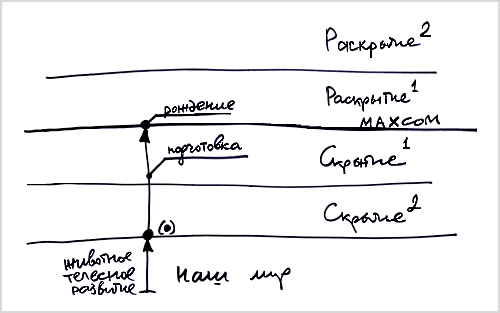 Раскрытие²
рождение
Раскрытие¹
МАХСОМ
подготовка
Скрытие¹
Скрытие²
(•)
животное
телесное
развитие
Наш мир